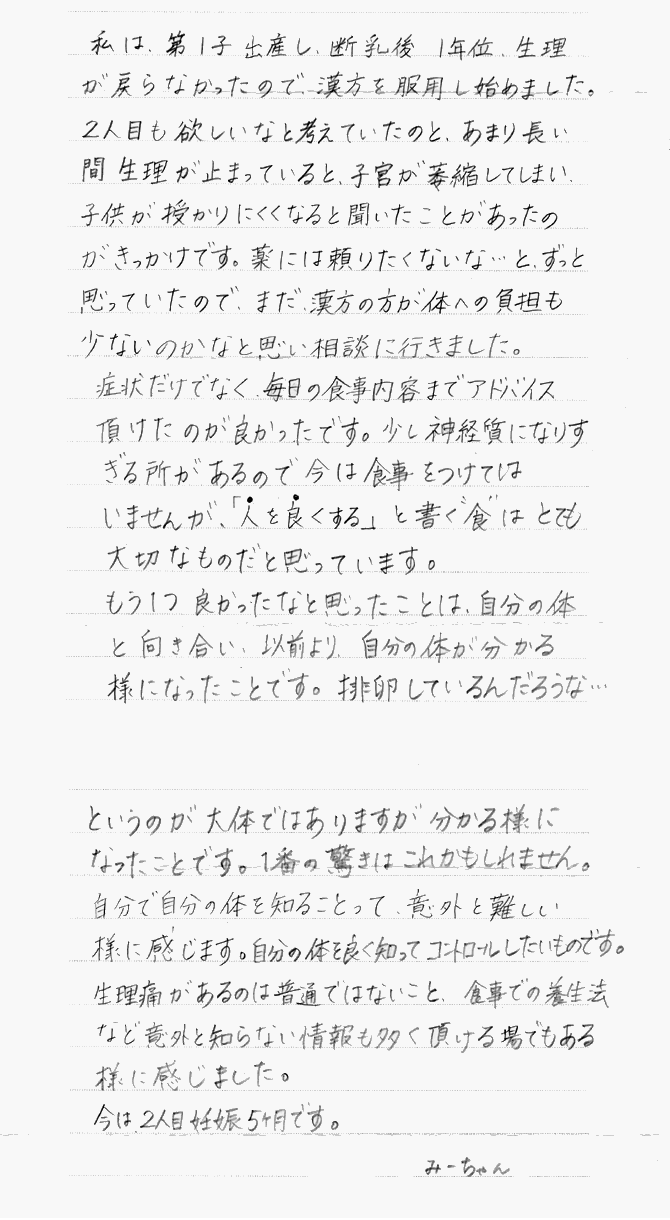 私は、第1子出産し、断乳後 1年位、生理
が戻らなかったので、漢方を服用し始めました。
2人目も欲しいなと考えていたのと、あまり長い
間生理が止まっていると、子宮が萎縮してしまい、
子供が授かりにくくなると聞いたことがあったの
がきっかけです。薬には頼りたくないな…と、ずっと
思っていたので、まだ、漢方の方が体への負担も
少ないのかなと思い相談に行きました。
症状だけでなく、毎日の食事内容までアドバイス
頂けたのが良かったです。少し神経質になりす
ぎる所があるので今は食事をつけては
いませんが、「人を良くする」と書く“食”はとても
大切なものだと思っています。
もう1つ良かったなと思ったことは、自分の体
と向き合い、以前より、自分の体が分かる
様になったことです。排卵しているんだろうな…
というのが大体ではありますが分かる様に
なったことです。1番の驚きはこれかもしれません。
自分で自分の体を知ることって、意外と難しい
様に感じます。自分の体を良く知ってコントロールしたいものです。
生理痛があるのは普通ではないこと、食事での養生法
など意外と知らない情報も多く頂ける場でもある
様に感じました。
今は、2人目妊娠5ヶ月です。
みーちゃん